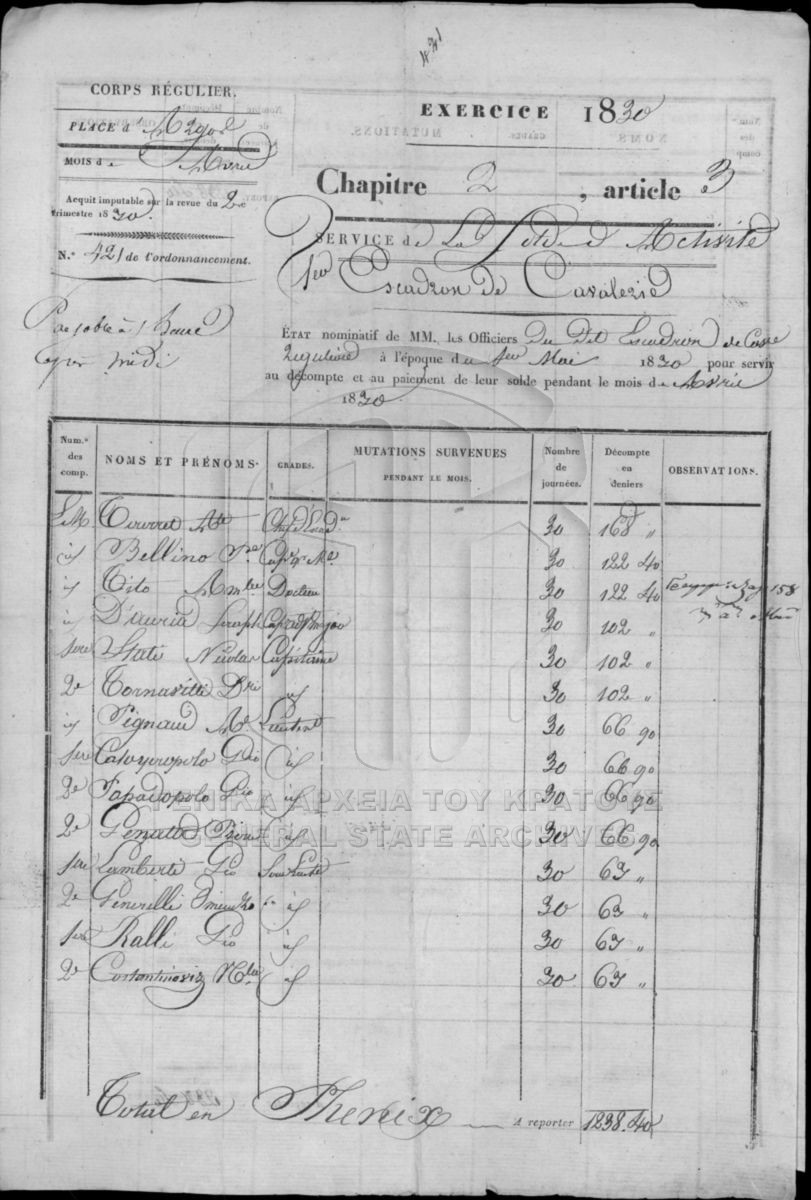 421
CORPS RÉGULIER.
PLACE d'Argos
MOIS de Avril
Acquit imputable sur la revue du 2e
trimestre 1830.
N.° 421 de l'ordonnancement.
Payable à 1 heure
après midi
EXERCICE 1830
Chapitre 2, article 3
SERVICE de La Solde d'Activité
1er Escadron de Cavalerie
ÉTAT nominatif de MM. les Officiers Du dit Escadron de Cav.rie
Régulière à l'époque du 1er Mai 1830 pour servir
au décompte et au paiement de leur solde pendant le mois de Avril
1830.
Num.°
des
comp.
NOMS ET PRÉNOMS.
GRADES.
MUTATIONS SURVENUES
PENDANT LE MOIS.
Nombre
de
journées.
Décompte
en
deniers
OBSERVATIONS.
30 168 "
id Bellino 30 122 40
id Tito Docteur 30 122 40
id D'auria Joseph 30 102 "
1ere Stati Nicolas Capitaine 30 102 "
2e id 30 102 "
id Pignaud Lieutent 30 66 90
1ere Gio id 30 66 90
2e Papadopolo Gio id 30 66 90
2e id 30 66 90
1ere Lamberti Gio Sous Lieutt 30 63 "
2e id 30 63 "
1ere Ralli Gio id 30 63 "
2e Costantinovis id 30 63 "
Total en Phenix A reporter 1238.40
ΓΕΝΙΚΑ ΑΡΧΕΙΑ ΤΟΥ ΚΡΑΤΟΥΣ
GENERAL STATE ARCHIVES